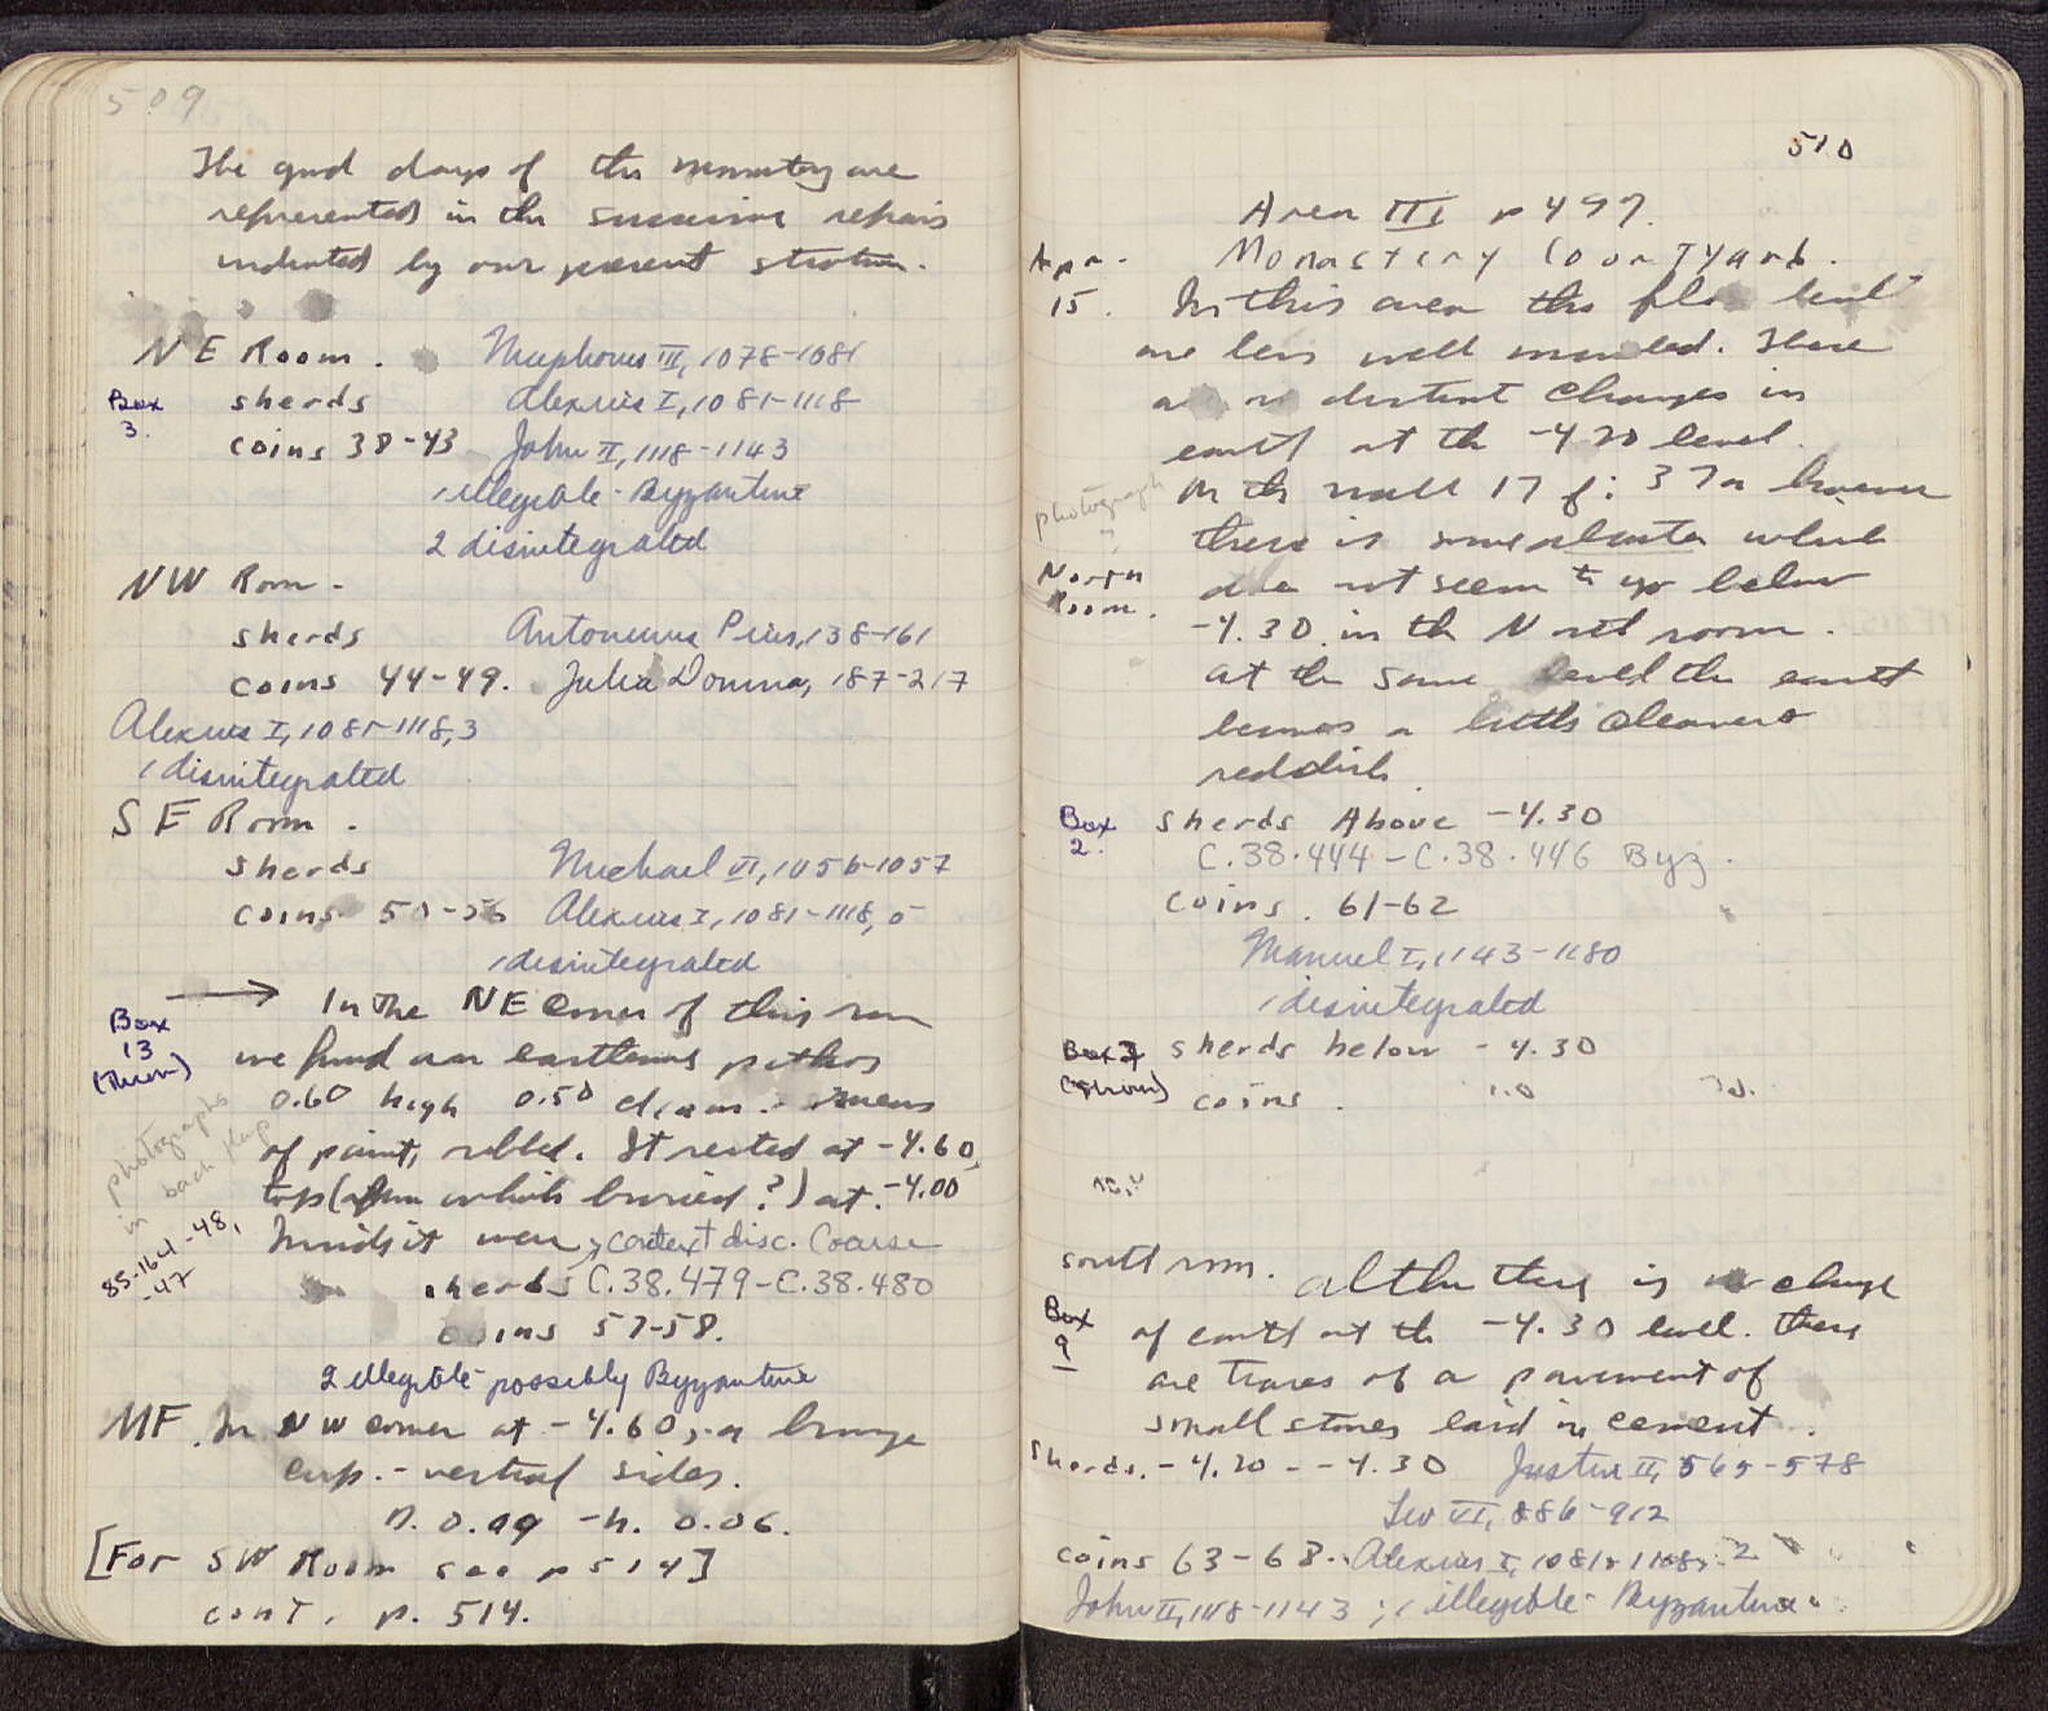 509
The good days of the monastery are
represented in the successive repairs
indicated by our present stratum.
NE Room. Nicephorus III, 1078-1081
Box 3. sherds Alexius I, 1081-1118
coins 38-43 John II, 1118-1143
1 illegible - Byzantine
2 disintegrated
NW Room.
sherds Antoninus Pius, 138-161
coins 44-49. Julia Domna, 187-217
Alexius I, 1081-1118, 3
1 disintegrated
SE Room.
sherds Michael VI, 1056-1057
coins 50-56 Alexius I, 1081-1118, 5
1 disintegrated
→ In the NE corner of this room
Box 13 (thrown) we found an earthenware pithos
0.60 high 0.50 diam.
of paint, ribbed. It rested at -4.60,
top (from which buried?) at -4.00
photographs in back Kup
Inside it were context disc. Coarse
85-164-48, -47
sherds C.38.479-C.38.480
coins 57-58.
2 illegible - possibly Byzantine
MF. In NW corner at -4.60, a bronze
cup. - vertical sides.
D. 0.09 - h. 0.06.
[For SW Room see p 514]
cont. p. 514.
510
Area III p 497.
Monastery Courtyard.
Apr. 15. In this area the floor levels
are less well marked. There
are no distinct changes in
earth at the -4.20 level.
On the wall 17 f: 37a however
photograph
there is some plaster which
North Room. does not seem to go below
-4.30 in the North room.
At the same level the earth
becomes a little cleaner &
reddish.
Box 2. sherds Above -4.30
C.38.444-C.38.446 Byz.
coins. 61-62
Manuel I, 1143-1180
1 disintegrated
Box 7 (thrown) sherds below -4.30
coins.
south room. Altho there is no change
Box 9 of earth at the -4.30 level. there
are traces of a pavement of
small stones laid in cement.
sherds. -4.20 - -4.30 Justin II, 565-578
Leo VI, 886-912
coins 63-68. Alexius I, 1081-1118, 2
John II, 1118-1143; 1 illegible - Byzantine